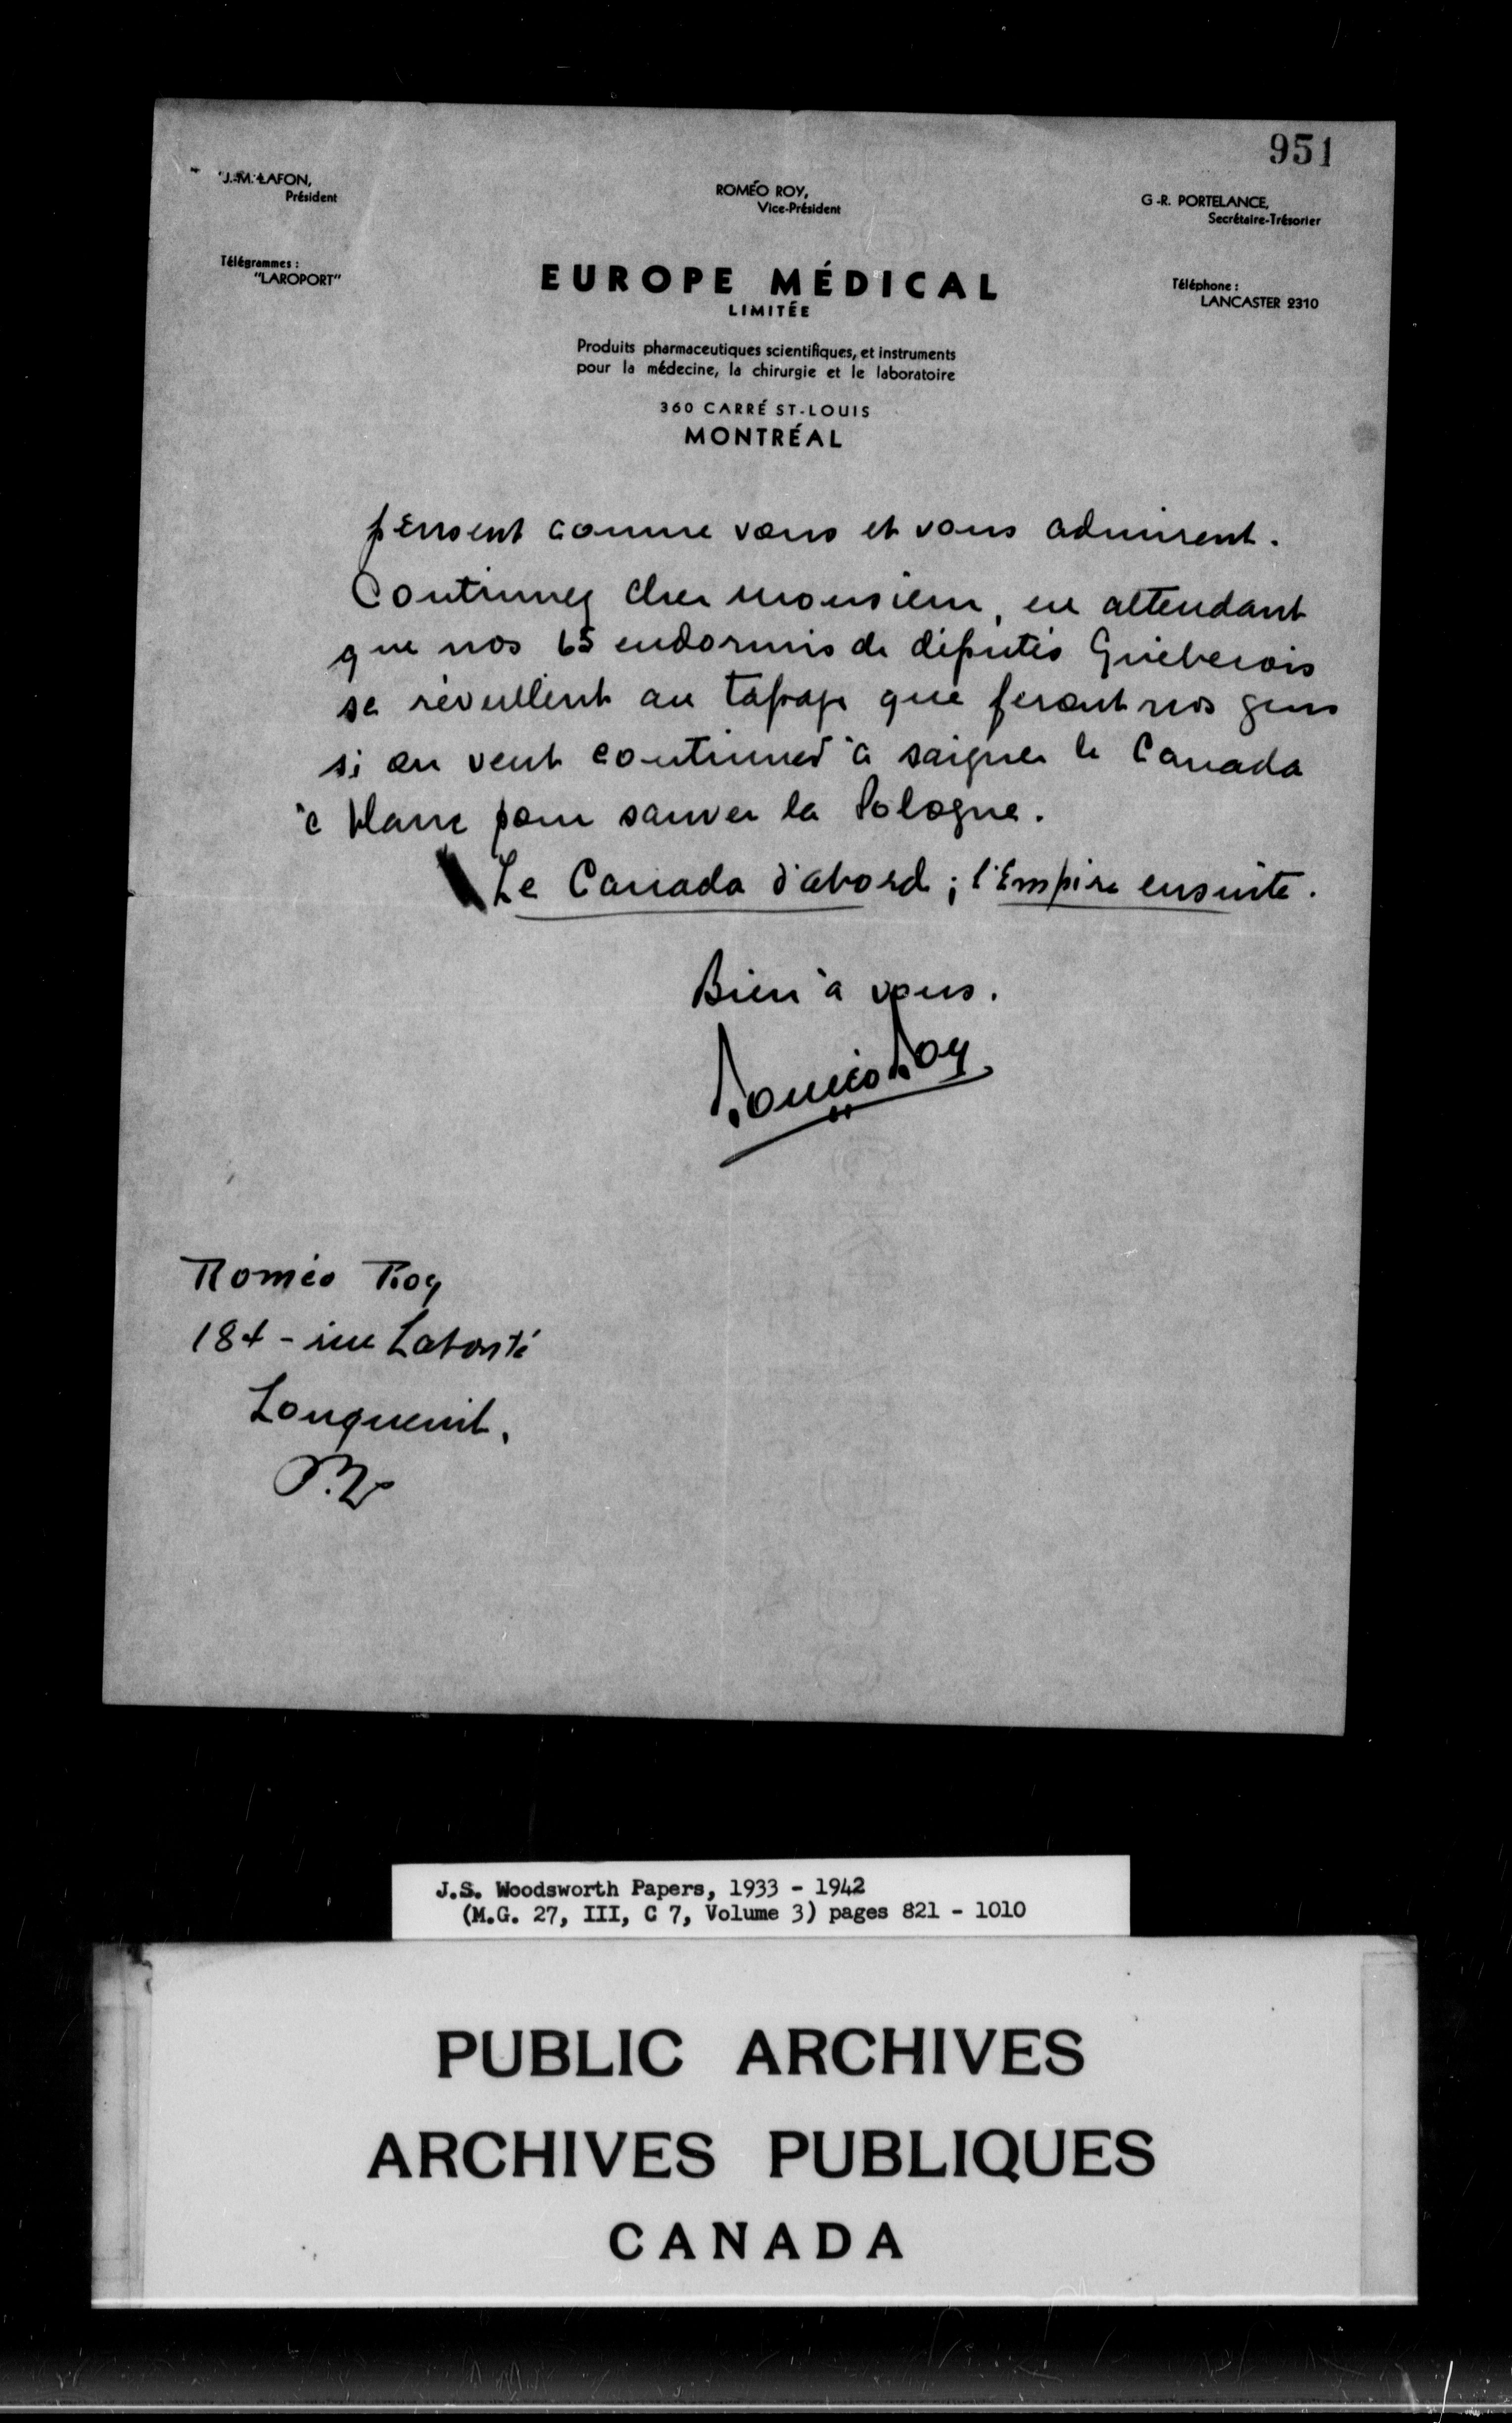 951
J.-M. LAFON,
Président
ROMÉO ROY,
Vice-Président
G.-R. PORTELANCE,
Secrétaire-Trésorier
Télégrammes :
"LAROPORT"
EUROPE MÉDICAL
LIMITÉE
Téléphone :
LANCASTER 2310
Produits pharmaceutiques scientifiques, et instruments
pour la médecine, la chirurgie et le laboratoire
360 CARRÉ ST-LOUIS
MONTRÉAL
pensent comme vous et vous admirent.
Continuez cher monsieur, en attendant
que nos 65 endormis de députés Québecois
se réveillent au tapage que feront nos gens
si on veut continuer à saigner le Canada
à blanc pour sauver la Pologne.
Le Canada d'abord ; l'Empire ensuite.
Bien à vous.
Roméo Roy
Roméo Roy
184 - rue Labonté
Longueuil.
P.Q
J.S. Woodsworth Papers, 1933 - 1942
(M.G. 27, III, C 7, Volume 3) pages 821 - 1010
PUBLIC ARCHIVES
ARCHIVES PUBLIQUES
CANADA